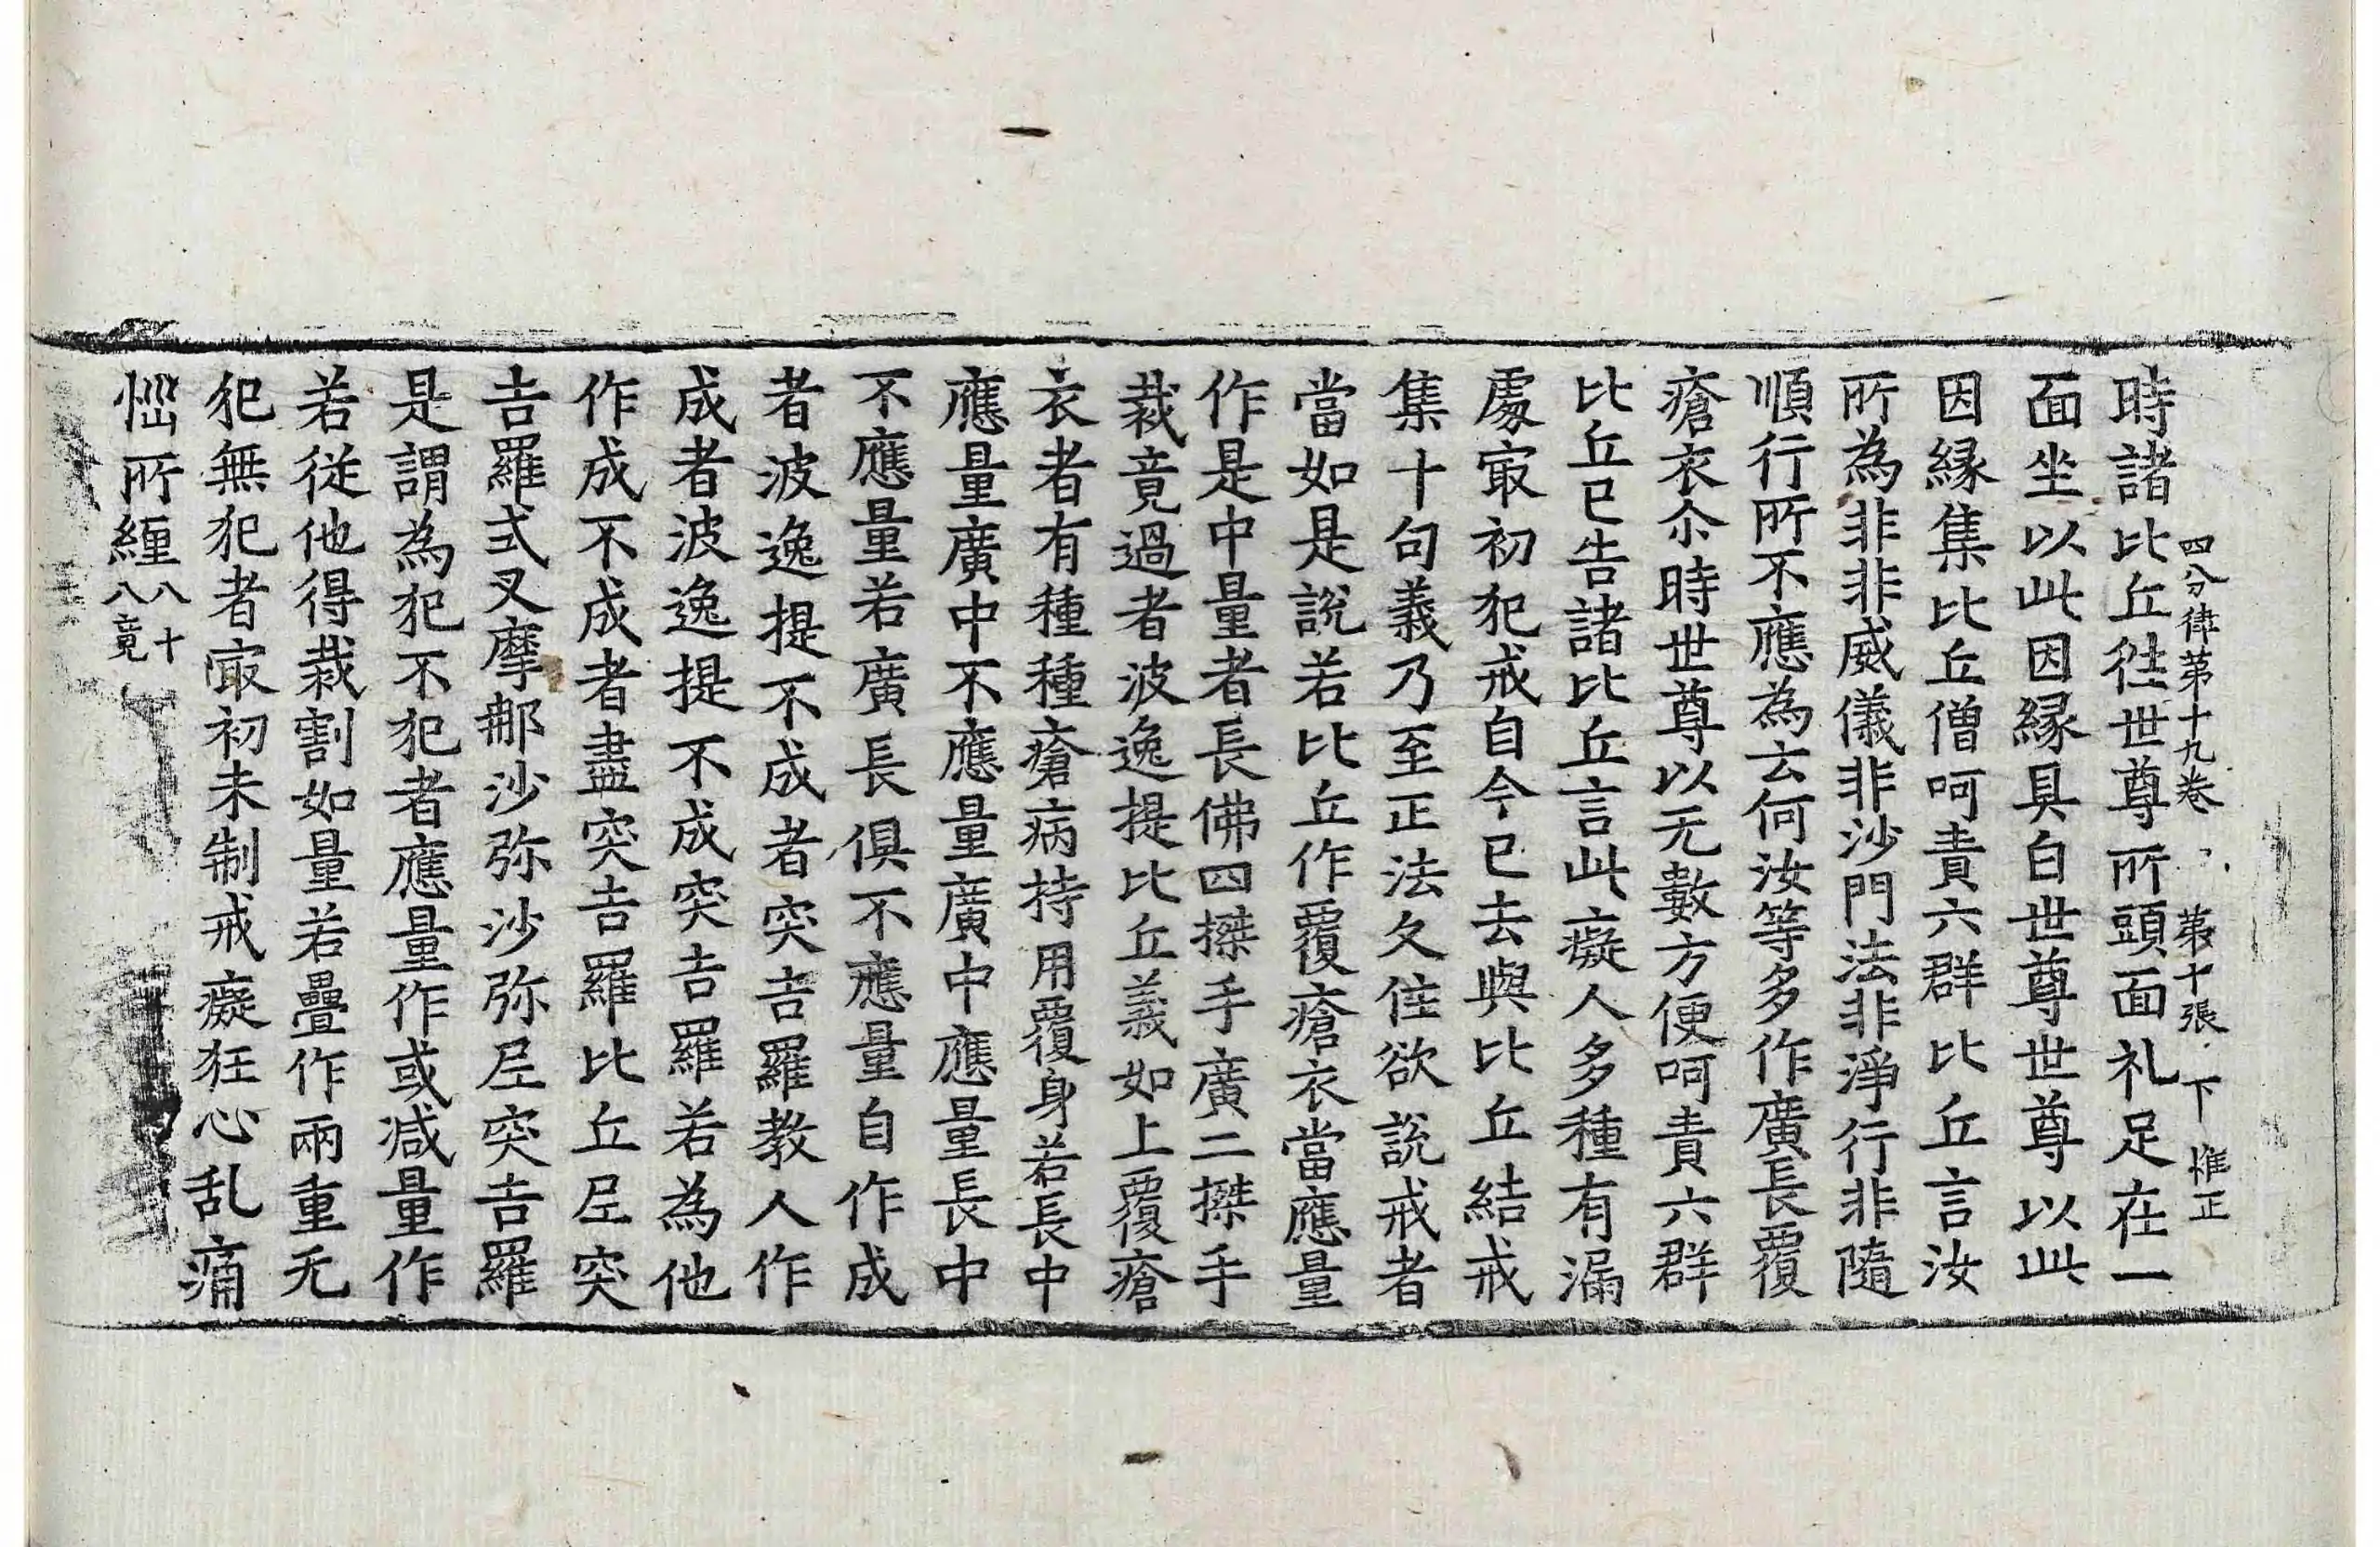 四分律苐十九卷 苐十張 下 惟正
時諸比丘徃世尊所頭面礼足在一
面坐以此因縁具白世尊世尊以此
因縁集比丘僧呵責六群比丘言汝
所為非非威儀非沙門法非淨行非隨
順行所不應為云何汝等多作廣長覆
瘡衣尒時世尊以无數方便呵責六群
比丘已告諸比丘言此癡人多種有漏
處㝡初犯戒自今已去與比丘結戒
集十句義乃至正法久住欲說戒者
當如是說若比丘作覆瘡衣當應量
作是中量者長佛四搩手廣二搩手
裁竟過者波逸提比丘義如上覆瘡
衣者有種種瘡病持用覆身若長中
應量廣中不應量廣中應量長中
不應量若廣長俱不應量自作成
者波逸提不成者突吉羅教人作
成者波逸提不成突吉羅若為他
作成不成者盡突吉羅比丘𡰱突
吉羅式叉摩那沙弥沙弥𡰱突吉羅
是謂為犯不犯者應量作或減量作
若從他得裁割如量若疊作兩重无
犯無犯者㝡初未制戒癡狂心乱痛
惱所纏八十八竟